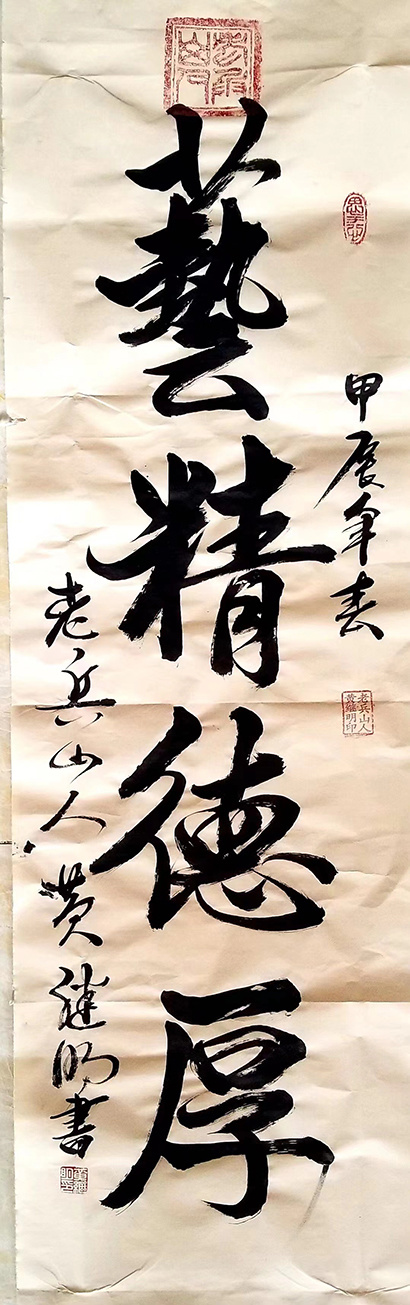 甲辰年春
老兵山人
黄继明印
藝精德厚
老兵山人黄继明書